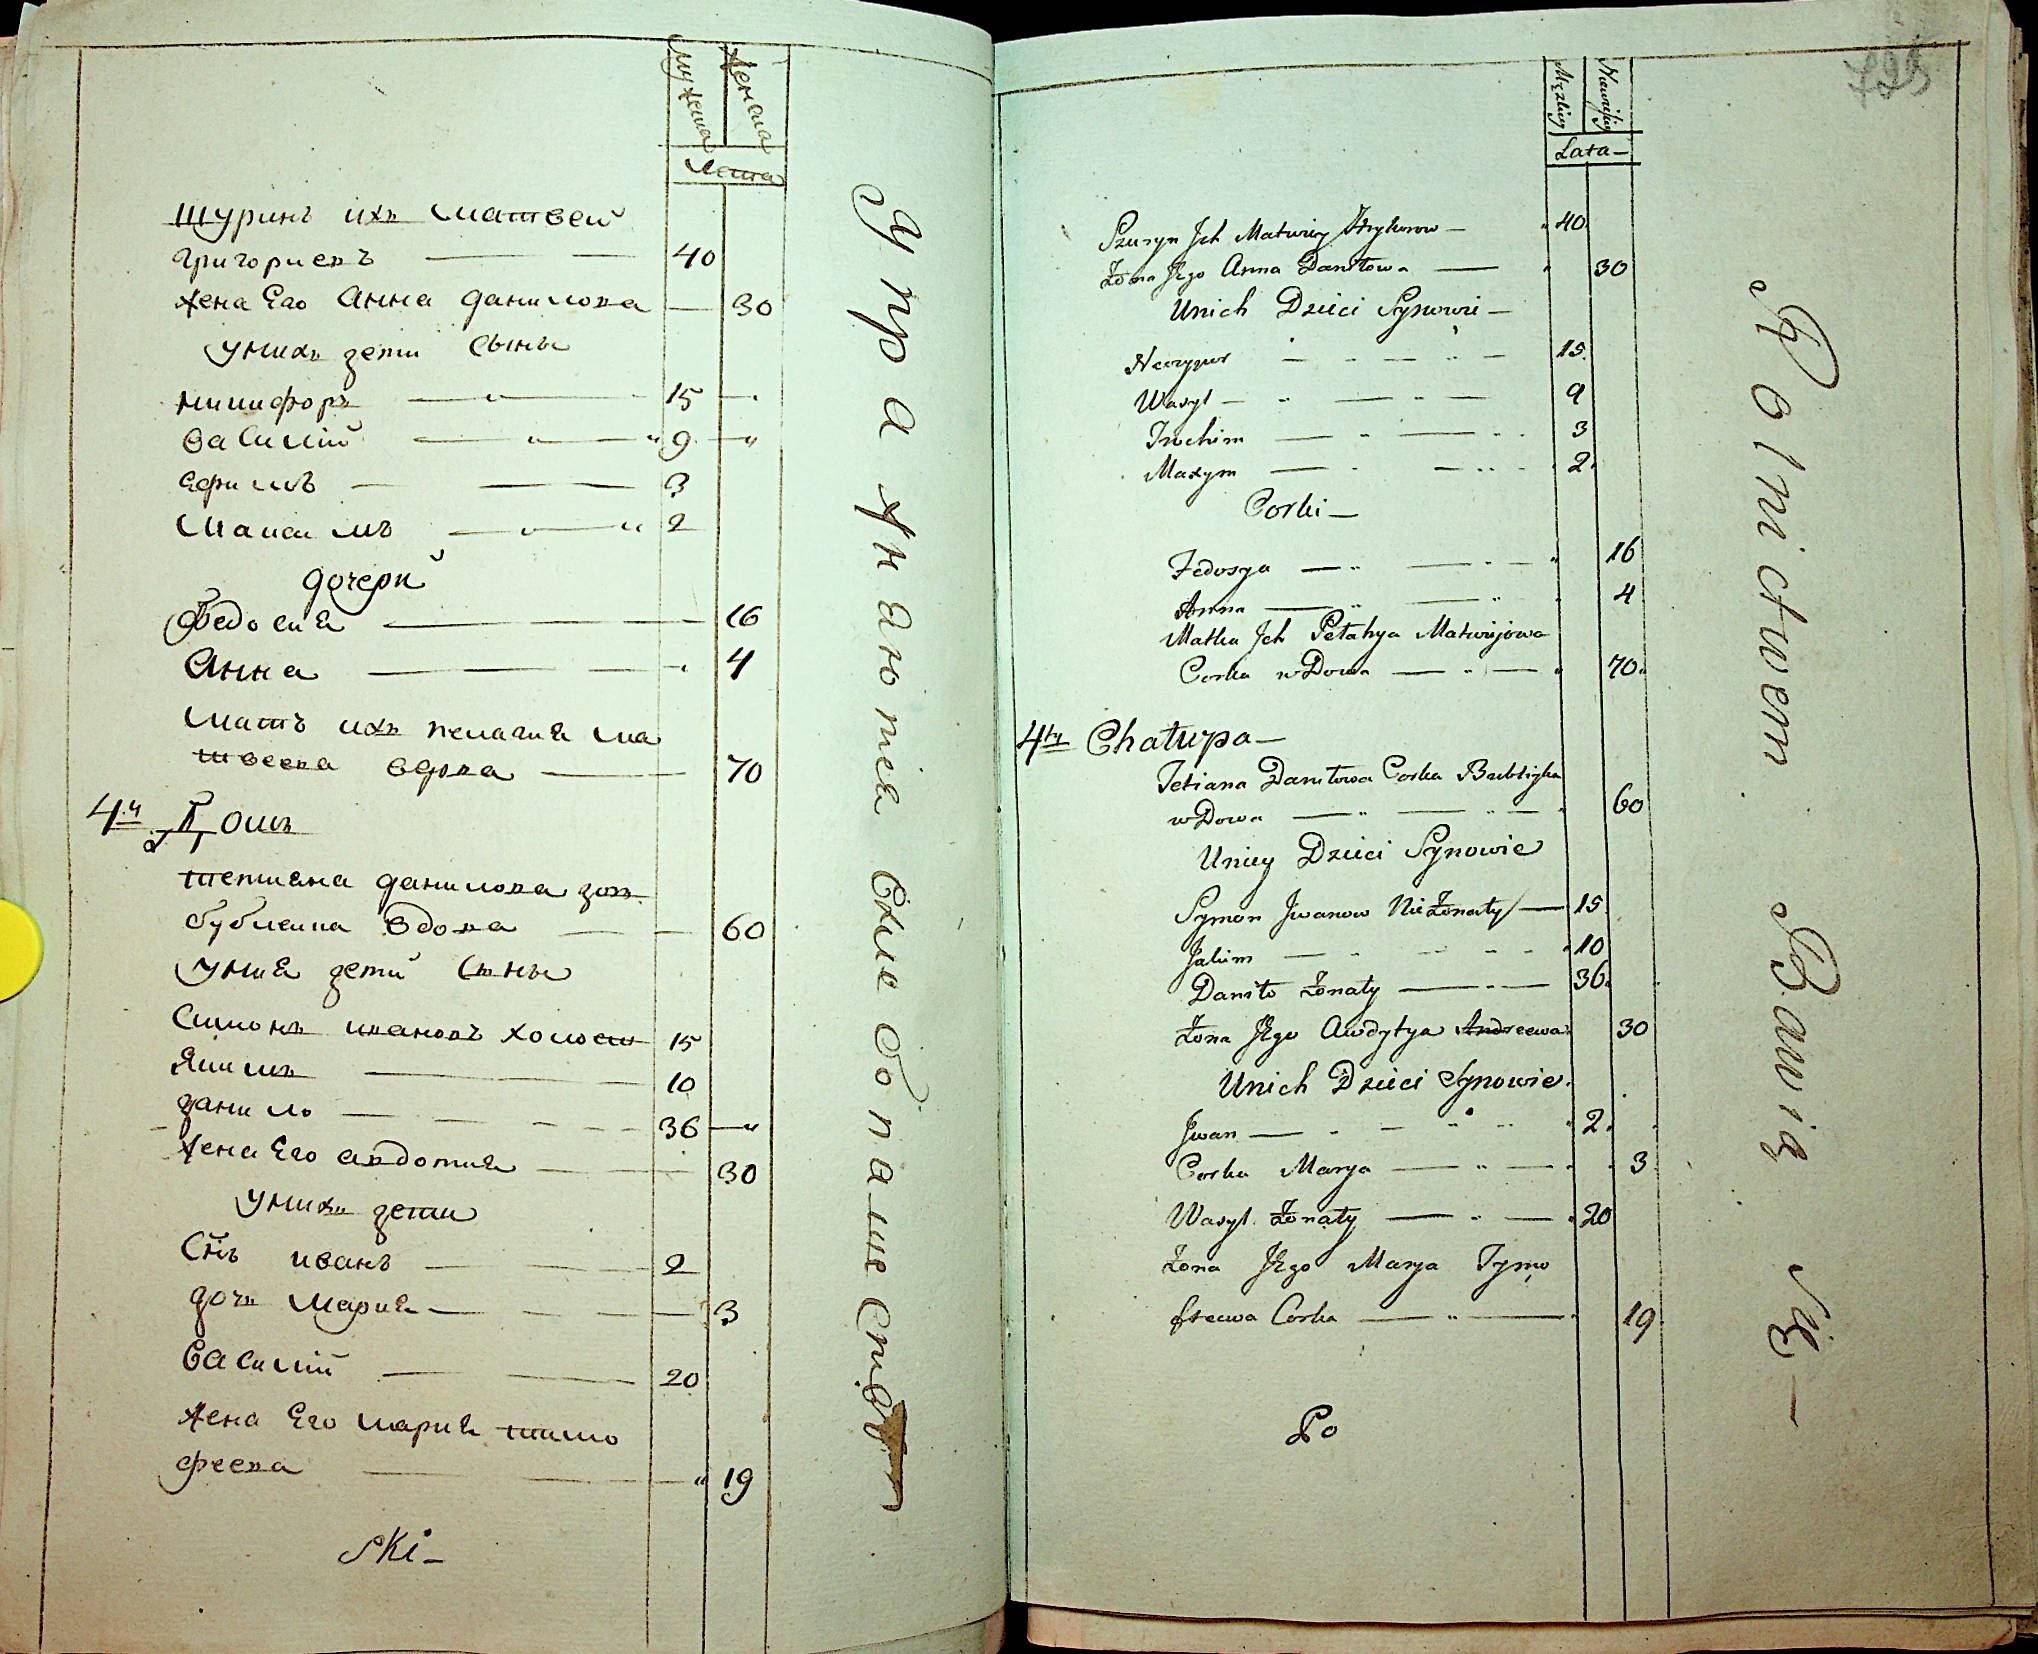 мужеска
женска
Лета
шуринъ ихъ матвей
григориевъ — — 40
жена Его анна данилова — 30
у нихъ дети сыны
никифоръ — " — 15 — "
василий — " — " 9 — "
ефимъ — — 3
максимъ — " — " 2
дочери
Федосия — — 16
анна — — " 4
мать ихъ пелагия ма
твеева вдова — 70
4й Домъ
тетияна данилова доч.
бублеика вдова — — 60
у ния дети сыны
симонъ ивановъ холост 15
якимъ — — 10
данило — — — 36 — "
жена Его авдотия — — 30
у нихъ дети
Снъ иванъ — — 2
дочь Мария — — 3
василий — — 20
жена Его мария тимо
феева — — " 19
ski —
Упражняются Хлебопашеством
725
Męzkiey
Niewiesciey
Lata —
Szuryn Jch Matwiey Hryhorow — 40
Żona Jego Anna Daniłowa — 30
Unich Dzieci Synowie —
Neczypor — 15
Wasyl — 9
Jochim — 3
Maxym — 2
Corki —
Fedosya — 16
Anna — 4
Matka Jch Pełahya Matwijowa
Corka wDowa — 70
4ty Chałupa —
Tetiana Daniłowa Corka Bublిyka
wDowa — 60
Uniey Dzieci Synowie
Symon Jwanow NieŻonaty — 15
Jakim — 10
Daniło Żonaty — 36
Żona Jego Awdytya Andreewa 30
Unich Dzieci Synowie
Jwan — 2
Corka Marya — 3
Wasyl Żonaty — 20
Żona Jego Marya Tymo
fteewa Corka — 19
Po
Rolnictwem Bawią Się —